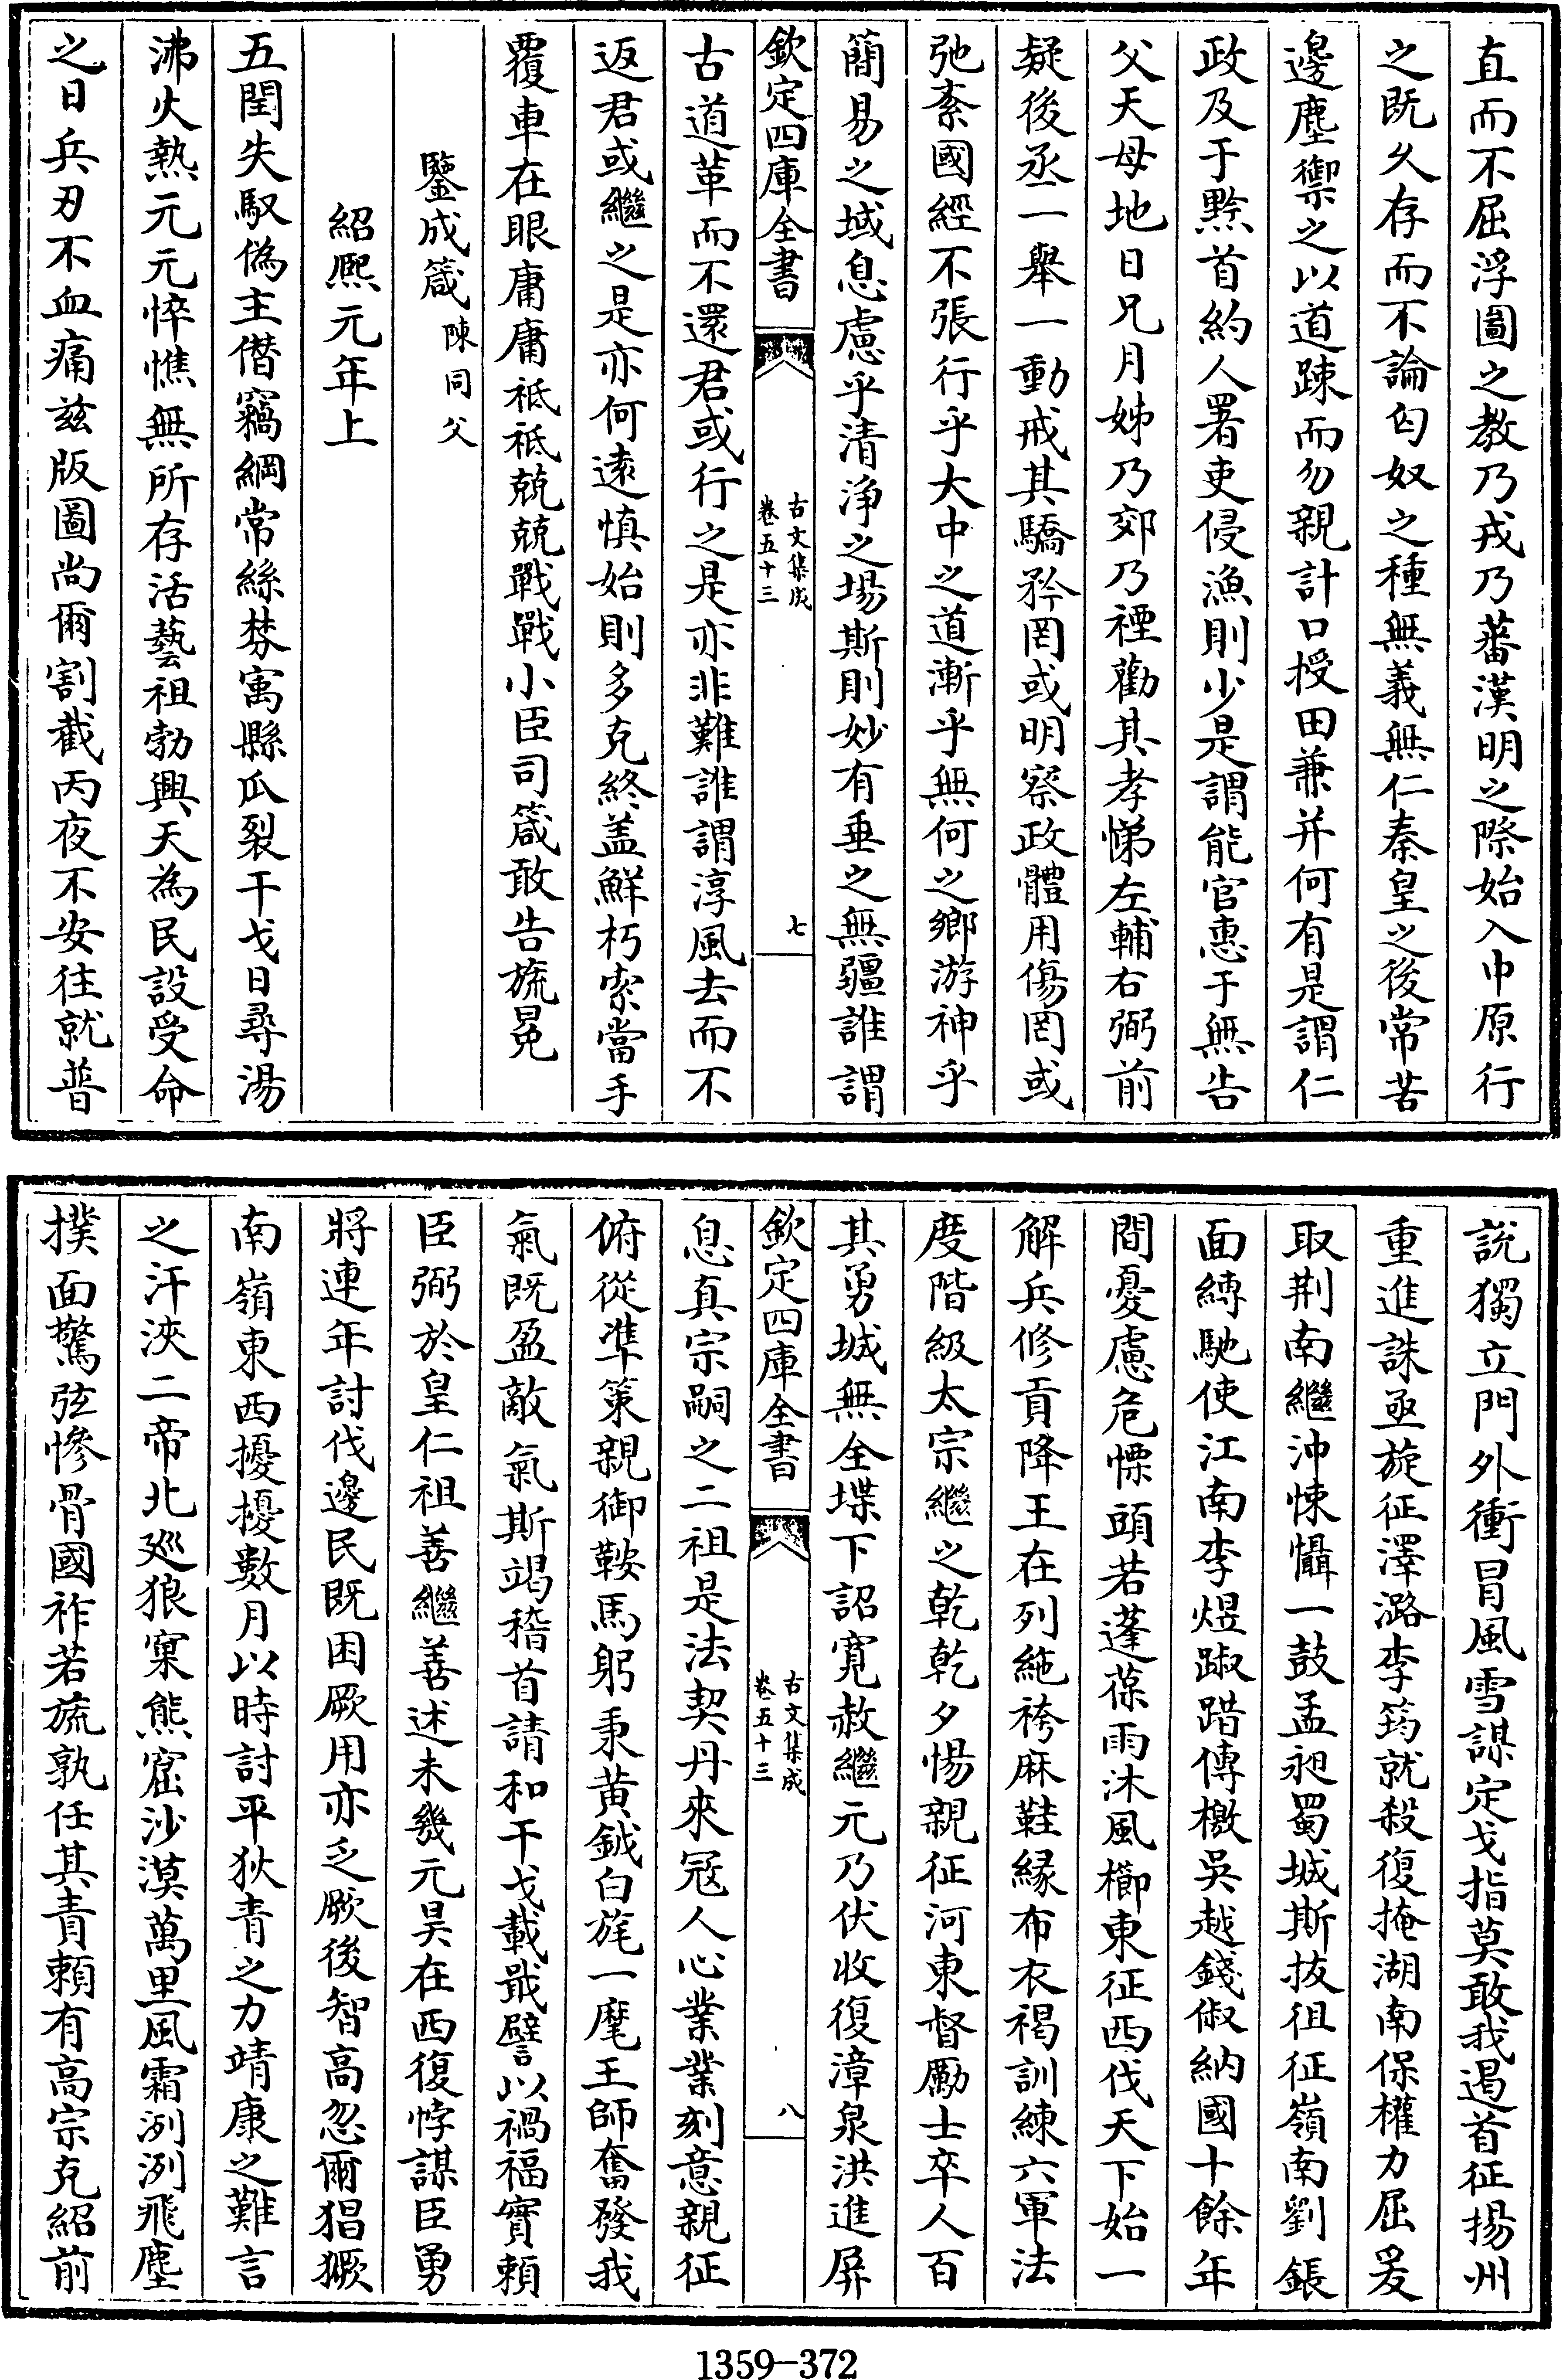 直而不屈浮圖之教乃戎乃蕃漢明之際始入中原行
之既久存而不論匈奴之種無義無仁秦皇之後常苦
邊塵禦之以道踈而勿親計口授田兼并何有是謂仁
政及于黔首約人署吏侵漁則少是謂能官惠于無告
父天母地日兄月姊乃郊乃禋勸其孝悌左輔右弼前
疑後丞一舉一動戒其驕矜罔或明察政體用傷罔或
弛紊國經不張行乎大中之道漸乎無何之鄉游神乎
簡易之域息慮乎清浄之場斯則妙有垂之無疆誰謂
欽定四庫全書
古文集成
卷五十三
七
古道革而不還君或行之是亦非難誰謂淳風去而不
返君或繼之是亦何逺慎始則多克終盖鮮朽索當手
覆車在眼庸庸祗祗兢兢戰戰小臣司箴敢告旒冕
鑒成箴陳同父
紹熙元年上
五閏失馭偽主僭竊綱常絲棼寓縣瓜裂干戈日尋湯
沸火熱元元悴憔無所存活藝祖勃興天為民設受命
之日兵刃不血痛兹版圖尚爾割截丙夜不安往就普
說獨立門外衝冒風雪謀定戈指莫敢我遏首征揚州
重進誅亟旋征澤潞李筠就殺復掩湖南保權力屈爰
取荆南繼沖悚懾一鼓孟昶蜀城斯拔徂征嶺南劉鋹
面縛馳使江南李煜踧踖傳檄吳越錢俶納國十餘年
間憂慮危慄頭若蓬葆雨沐風櫛東征西伐天下始一
解兵修貢降王在列絁袴麻鞋緣布衣褐訓練六軍法
度階級太宗繼之乾乾夕惕親征河東督勵士卒人百
其勇城無全堞下詔寛赦繼元乃伏收復漳泉洪進屏
欽定四庫全書
古文集成
卷五十三
八
息真宗嗣之二祖是法契丹來冦人心業業刻意親征
俯從凖策親御鞍馬躬秉黄鉞白旄一麾王師奮發我
氣既盈敵氣斯竭稽首請和干戈載戢譬以禍福實賴
臣弼於皇仁祖善繼善述未幾元昊在西復悖謀臣勇
將連年討伐邊民既困厥用亦乏厥後智高忽爾猖獗
南嶺東西擾擾數月以時討平狄青之力靖康之難言
之汗浹二帝北廵狼窠熊窟沙漠萬里風霜洌洌飛塵
撲面驚弦慘骨國祚若旒孰任其責賴有高宗克紹前
1359—372